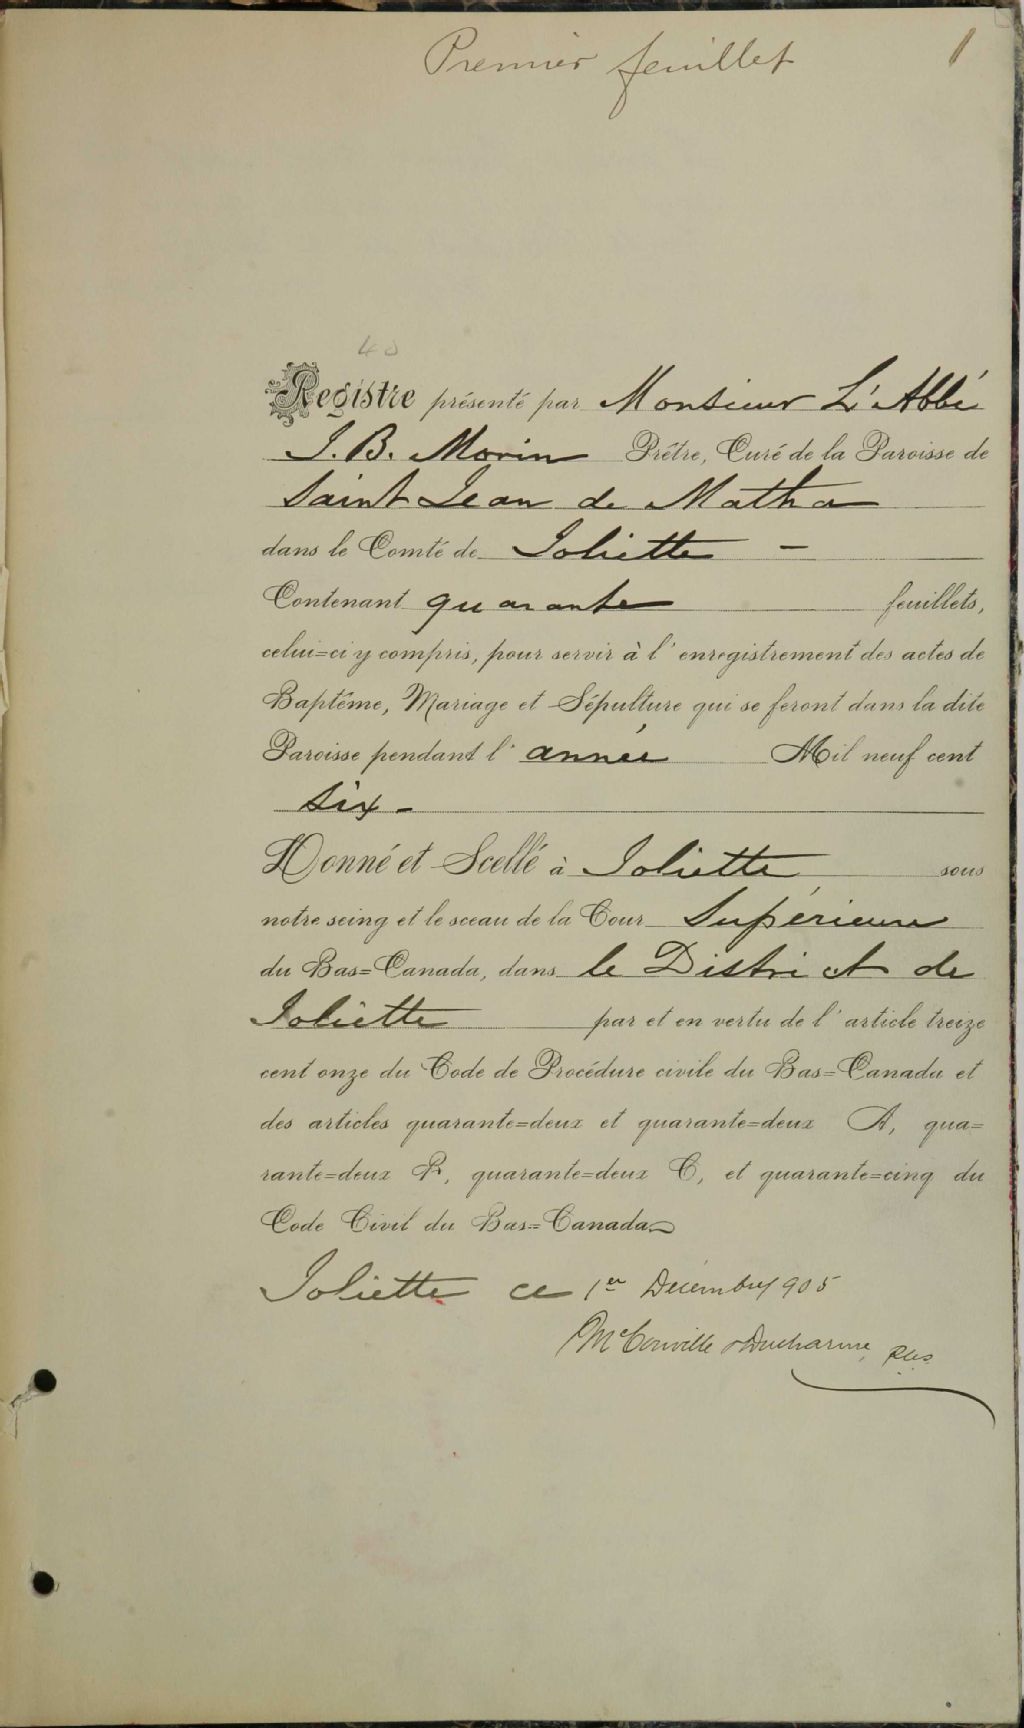 Premier feuillet 1
40
Registre présenté par Monsieur L'Abbé
J. B. Morin Prêtre, Curé de la Paroisse de
Saint Jean de Matha
dans le Comté de Joliette –
Contenant quarante feuillets,
celui=ci y compris, pour servir à l'enregistrement des actes de
Baptême, Mariage et Sépulture qui se feront dans la dite
Paroisse pendant l'année Mil neuf cent
six –
Donné et Scellé à Joliette sous
notre seing et le sceau de la Cour Supérieure
du Bas=Canada, dans le District de
Joliette par et en vertu de l'article treize
cent onze du Code de Procédure civile du Bas=Canada et
des articles quarante=deux et quarante=deux A, qua=
rante=deux B, quarante=deux C, et quarante=cinq du
Code Civil du Bas=Canada
Joliette ce 1er Décembre 1905
McConville & Ducharme